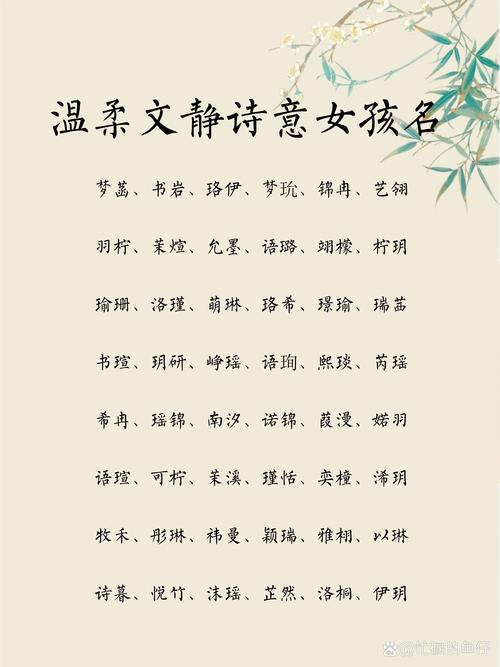 温柔文静诗意女孩名
梦菡、书岩、珞伊、梦玧、锦冉、艺翎
羽柠、茉煊、允墨、语璐、翊檬、柠玥
瑜珊、洛瑾、萌琳、珞希、璟瑜、瑞茜
书瑄、玥研、峥瑶、语珣、熙琰、芮瑶
希冉、瑶锦、南汐、诺锦、葭漫、婼羽
语瑄、可柠、茉溪、瑾恬、奕橦、浠玥
牧禾、彤琳、祎曼、颖瑞、雅栩、以琳
诗暮、悦竹、沫瑶、芷然、洛桐、伊玥